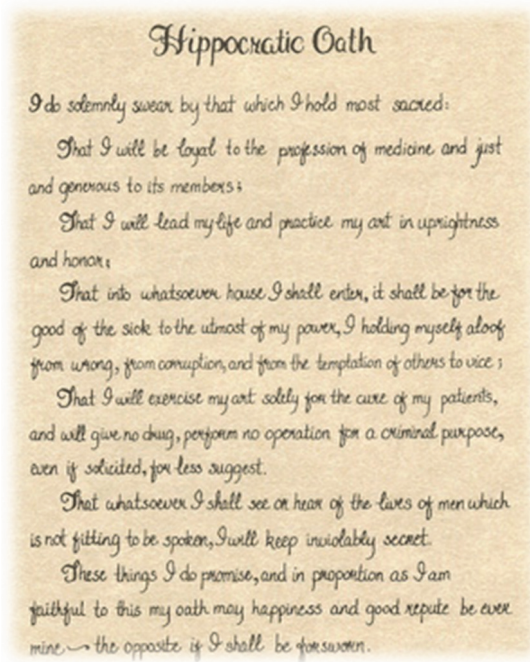 Hippocratic Oath
I do solemnly swear by that which I hold most sacred:
That I will be loyal to the profession of medicine and just
and generous to its members;
That I will lead my life and practice my art in uprightness
and honor;
That into whatsoever house I shall enter, it shall be for the
good of the sick to the utmost of my power, I holding myself aloof
from wrong, from corruption, and from the temptation of others to vice;
That I will exercise my art solely for the cure of my patients,
and will give no drug, perform no operation for a criminal purpose,
even if solicited, for less suggest.
That whatsoever I shall see or hear of the lives of men which
is not fitting to be spoken, I will keep inviolably secret.
These things I do promise, and in proportion as I am
faithful to this my oath may happiness and good repute be ever
mine — the opposite if I shall be forsworn.